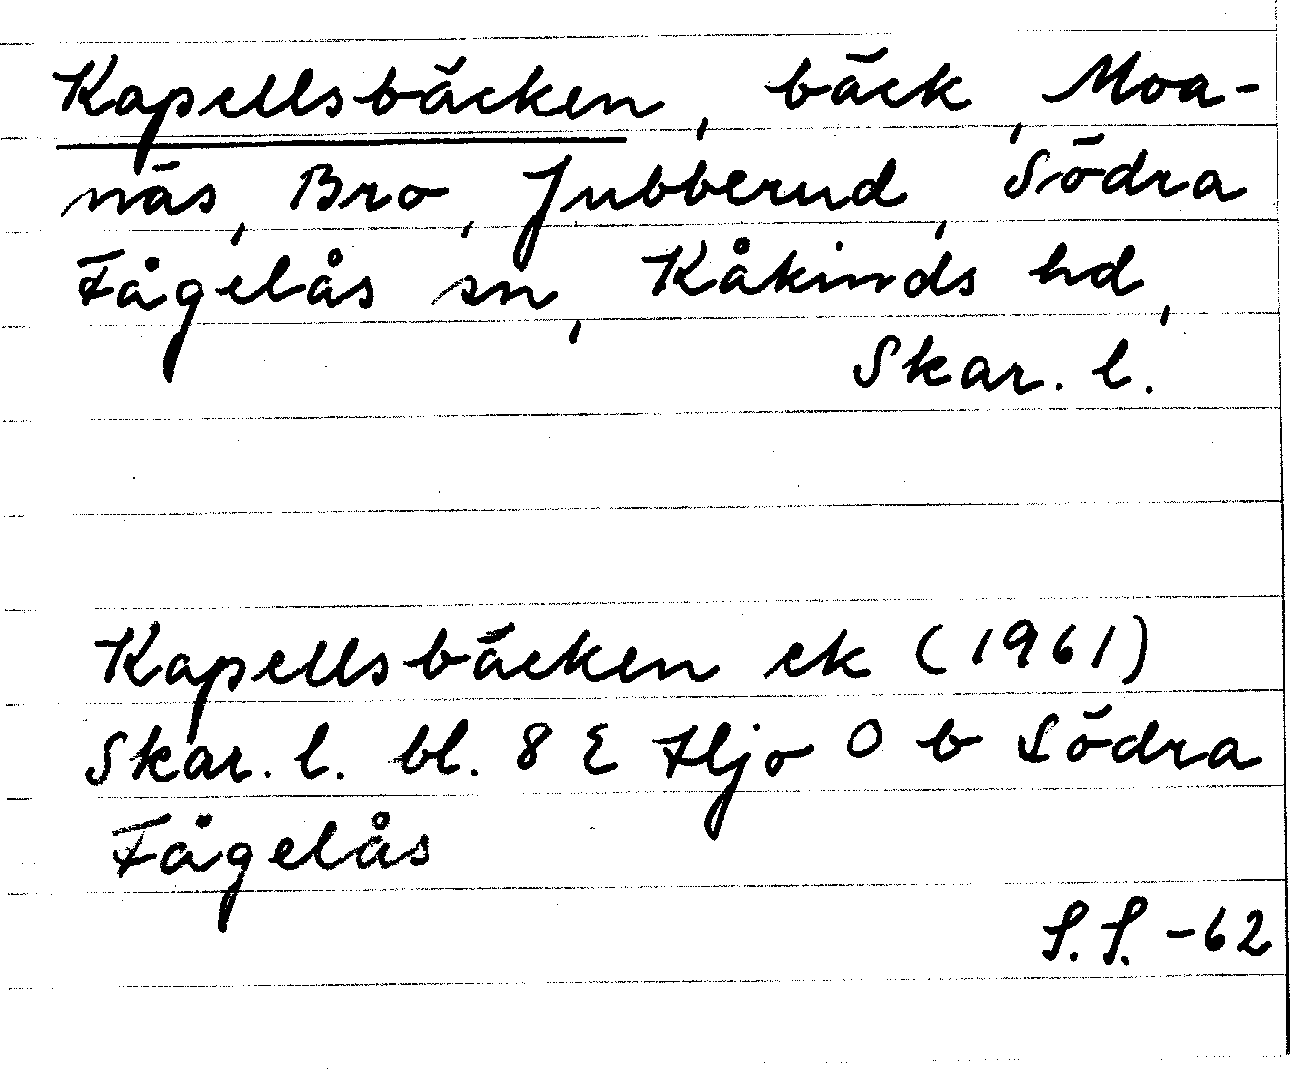 Kapellsbäcken, bäck, Moa-
näs, Bro, Jubberud, Södra
Fågelås sn, Kåkinds hd,
Skar. l.
Kapellsbäcken ek (1961)
Skar. l. bl. 8 E Hjo 0 b Södra
Fågelås
S.S. -62